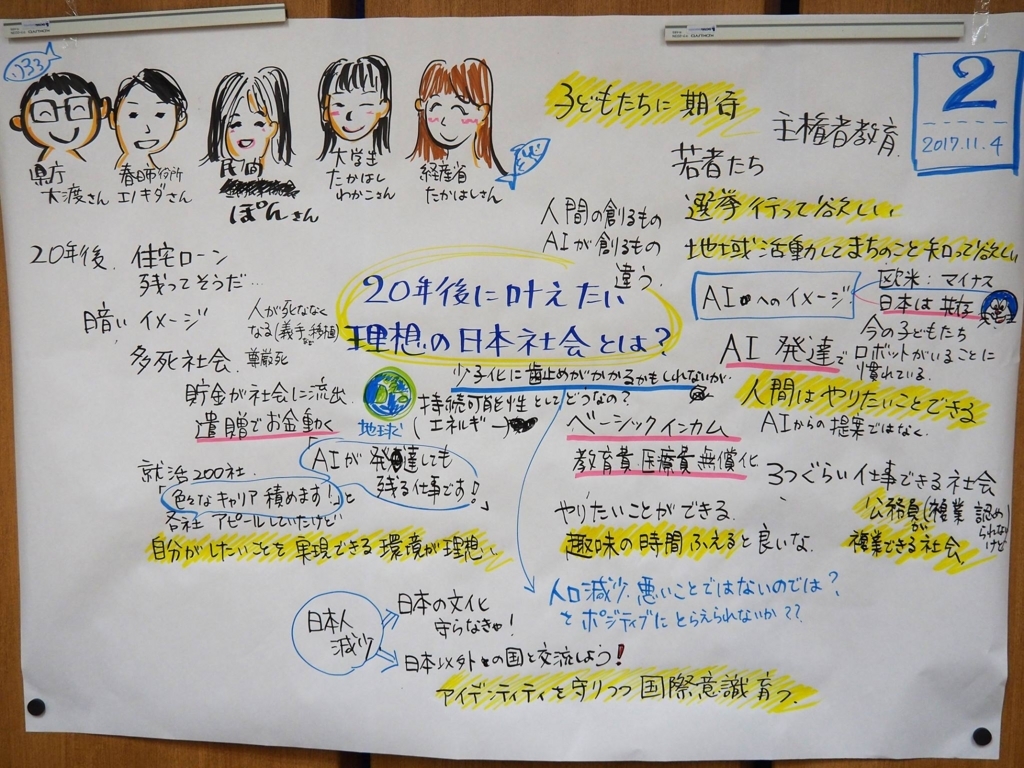 2
2017.11.4
県庁
大渡さん
春日市役所
エノキダさん
民間
ぽんさん
大学生
たかはし
わかこさん
経産省
たかはしさん
子どもたちに期待
主権者教育
若者たち
選挙行って欲しい
地域活動してまちのこと知って欲しい
人間の創るもの
AIが創るもの
違う
20年後に叶えたい
理想の日本社会とは?
20年後、住宅ローン
残ってそうだ…
暗いイメージ
人が死ななく
なる(義手、移植など
多死社会
尊厳死
貯金が社会に流出
遺贈でお金動く
地球で
少子化に歯止めがかかるかもしれないが
持続可能性としてどうなの?
(エネルギー
AIへのイメージ
欧米:マイナス
日本は共存
今の子どもたち
ロボットがいることに
慣れている。
AI発達で
人間はやりたいことできる
AIからの提案ではなく、
ベーシックインカム
教育費医療費無償化
3つぐらい仕事できる社会
公務員が(複業認め
られないけど
複業できる社会
やりたいことができる
趣味の時間ふえると良いな
就活200社
「色々なキャリア積めます!」と
「AIが発達しても
残る仕事です!」
各社アピールしていたけど
自分がしたいことを実現できる環境が理想
人口減少、悪いことではないのでは?
をポジティブにとらえられないか??
日本人
減少
日本の文化
守らなきゃ!
日本以外の国と交流しよう!
アイデンティティを守りつつ国際意識育つ